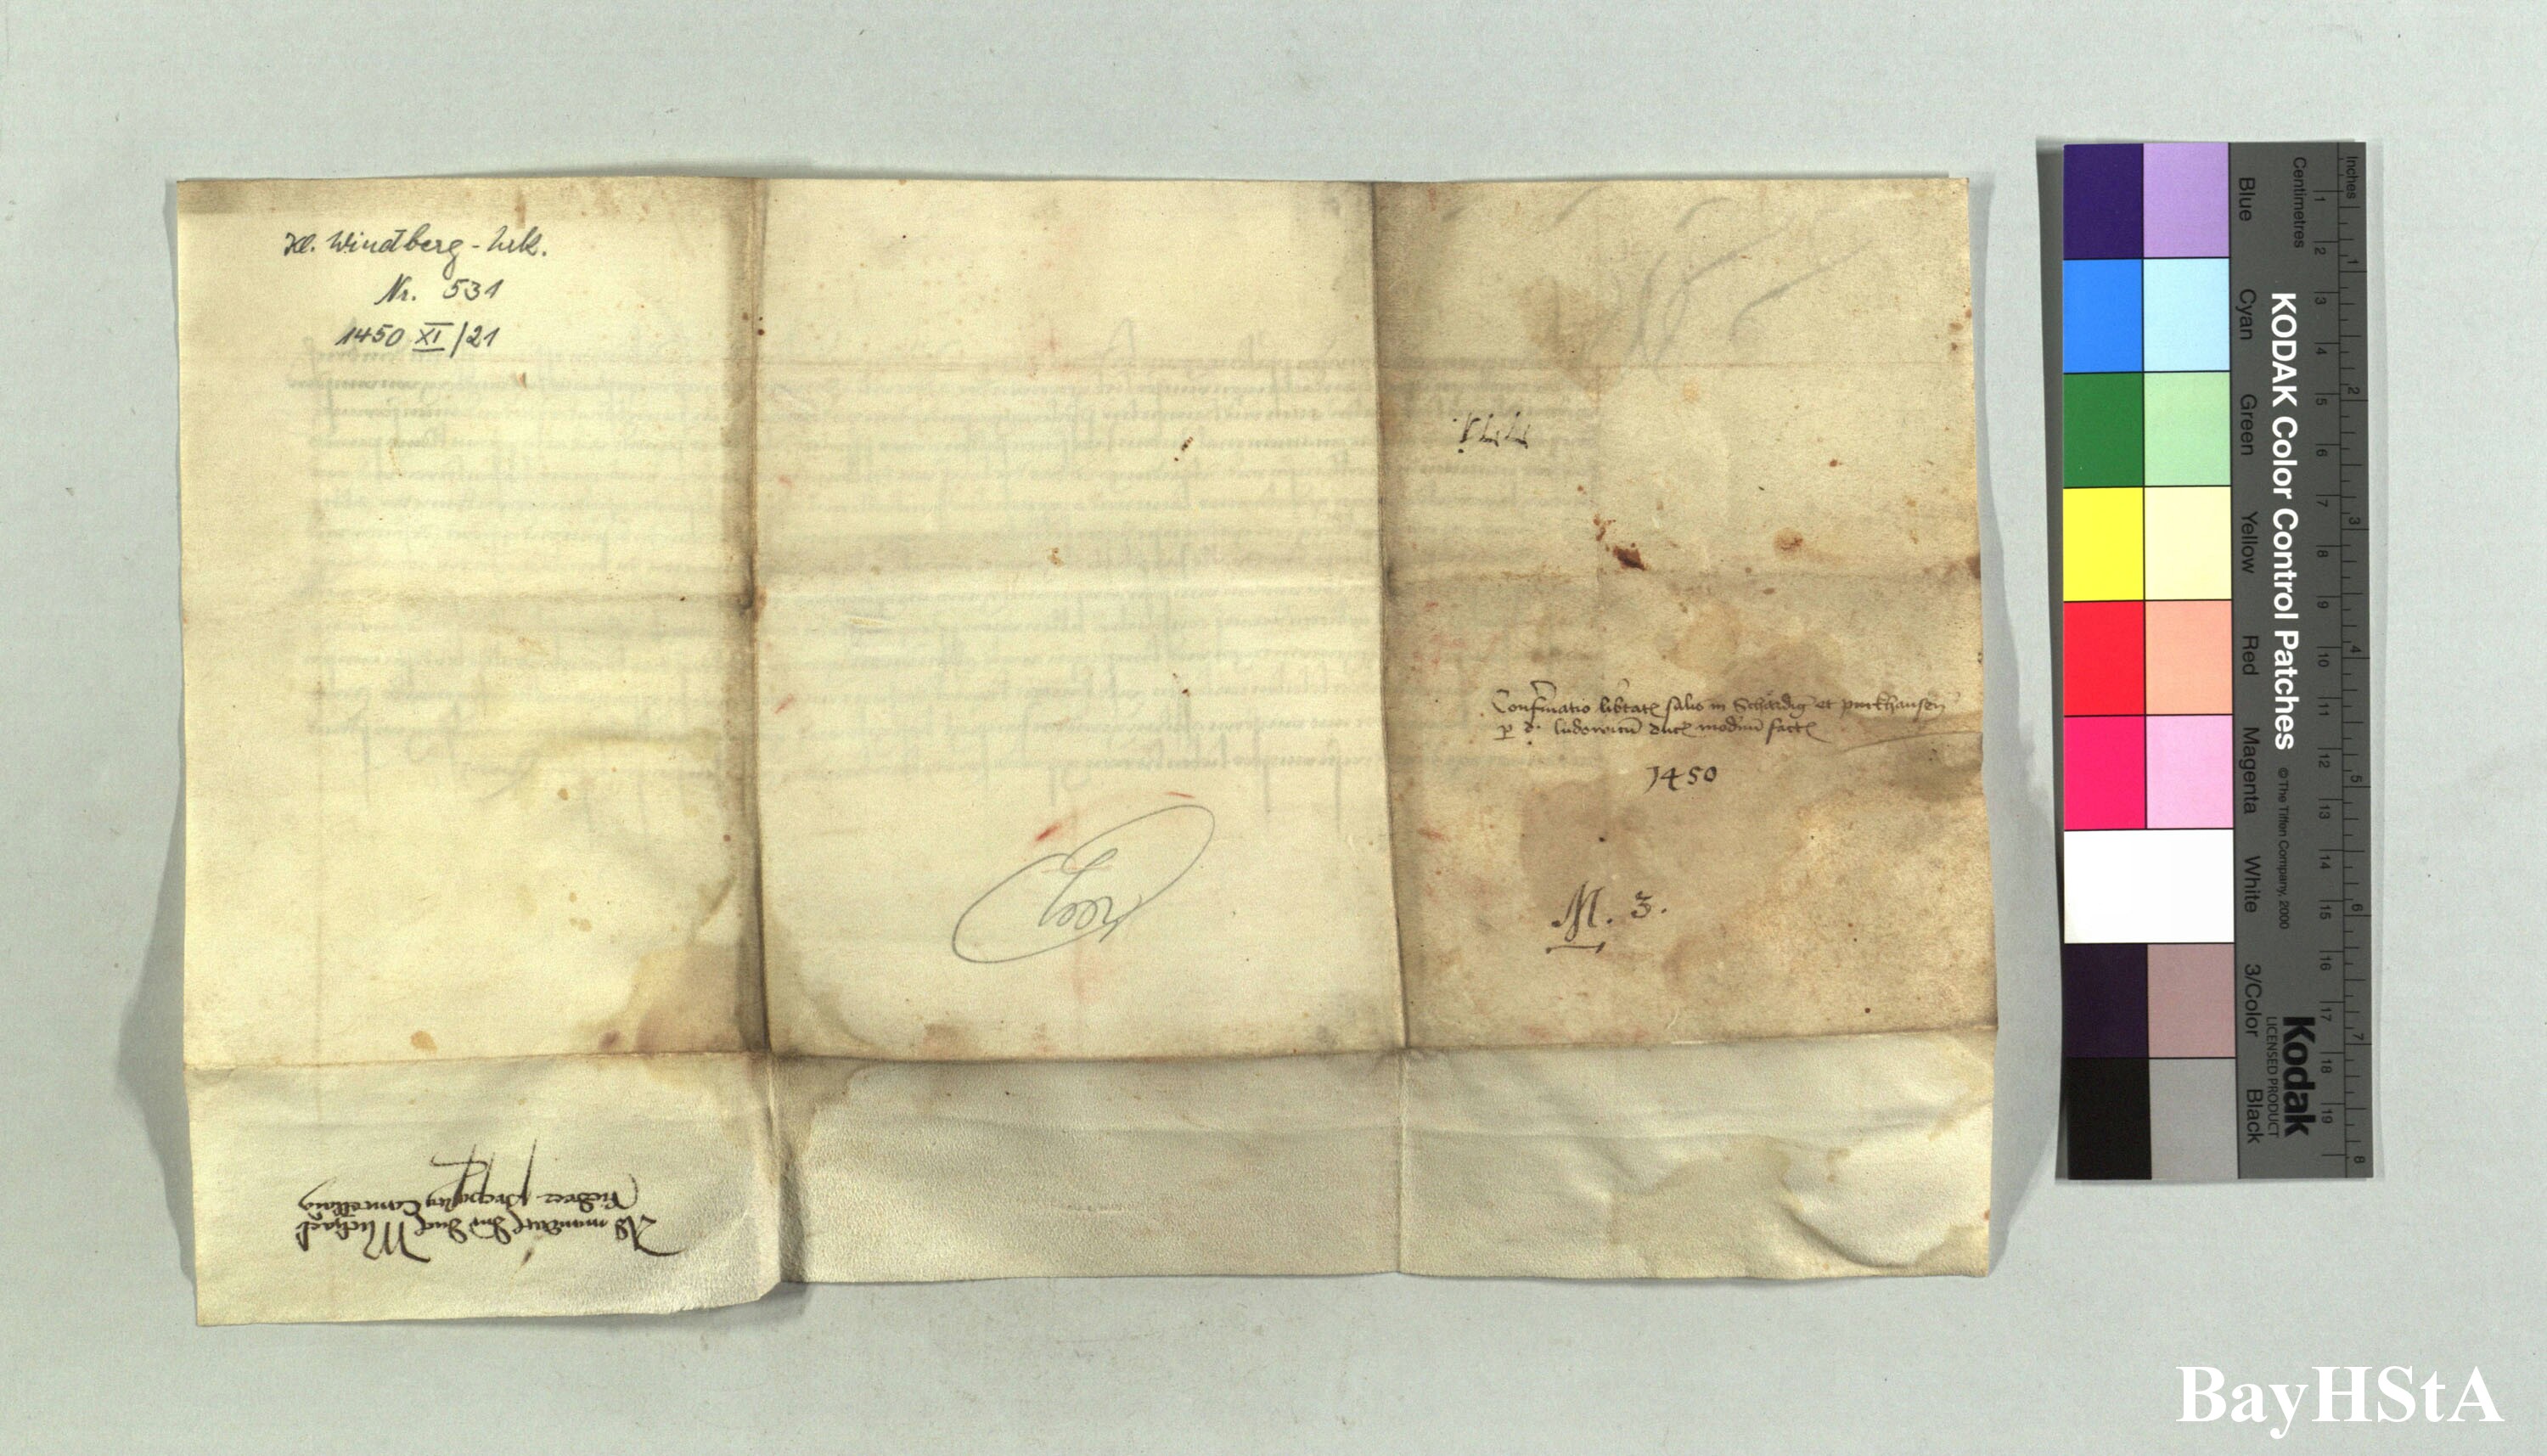 Kl. Windberg-Urk.
Nr. 531
1450 XI/21
Confirmatio libtat salis in Schärdig et purkhausen
p d. ludowicū duc modnū fact
1450
M. 3.
Ad mandat dni duc Michael
Riedrer Cancellari
Blue
Cyan
Green
Yellow
Red
Magenta
White
3/Color
Black
KODAK Color Control Patches
© The Tiffen Company, 2000
Kodak
LICENSED PRODUCT
Centimetres
1 2 3 4 5 6 7 8 9 10 11 12 13 14 15 16 17 18 19
Inches
1 2 3 4 5 6 7 8
BayHStA